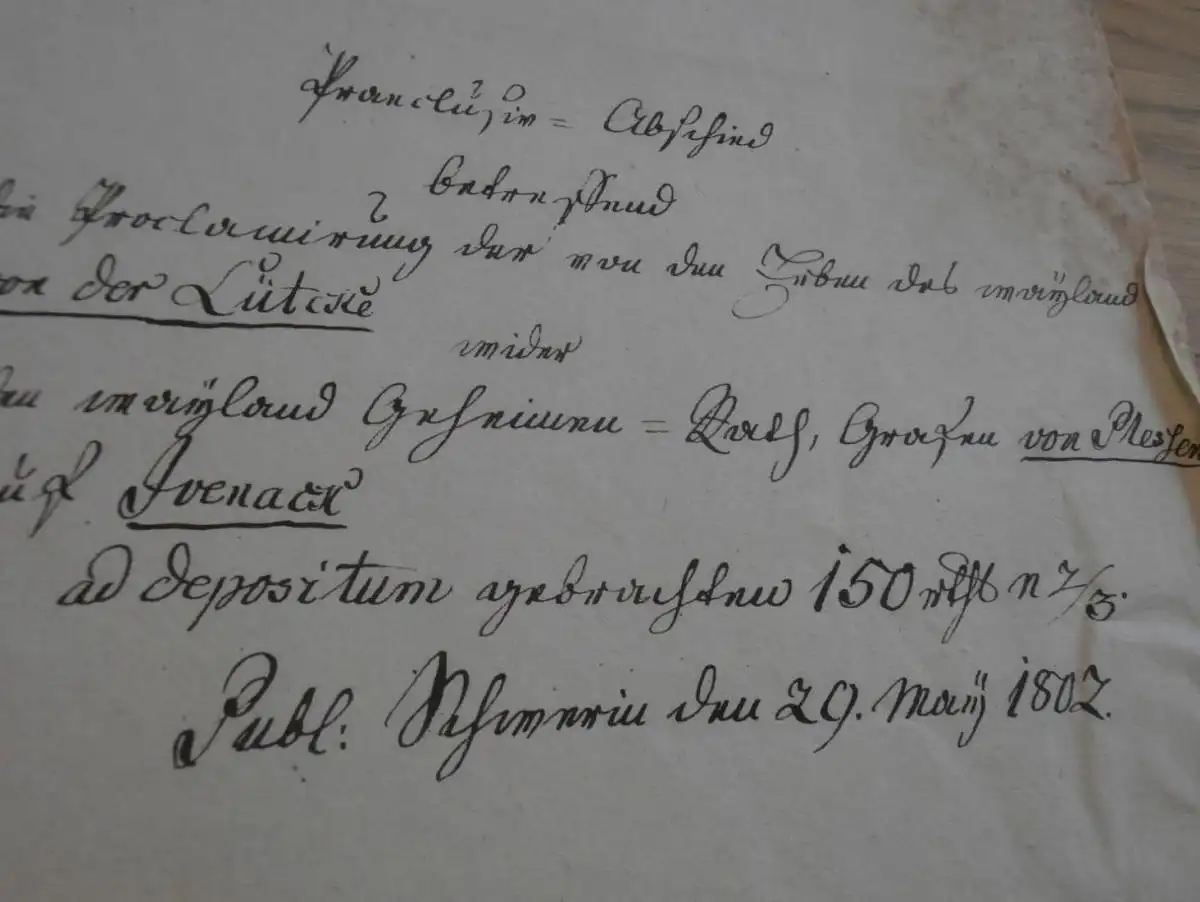 Praeclusiv = Abschied
betreffend
die Proclamirung der von den Erben des weyland
von der Lütcke
wider
den weyland Geheimen = Rath, Grafen von Plessen
auf Ivenack
ad depositum gebrachten 150 rthl n 2/3.
Publ: Schwerin den 29. Maÿ 1802.